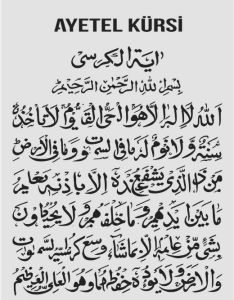 AYETEL KÜRSİ
اية الكرسى
بسم الله الرحمن الرحيم
الله لا اله الا هو الحى القيوم لا تأخذه
سنة ولا نوم له ما فى السموات وما فى الارض
من ذا الذى يشفع عنده الا باذنه يعلم
ما بين ايديهم وما خلفهم ولا يحيطون
بشئ من علمه الا بما شاء وسع كرسيه السموات
والارض ولا يؤده حفظهما وهو العلى العظيم